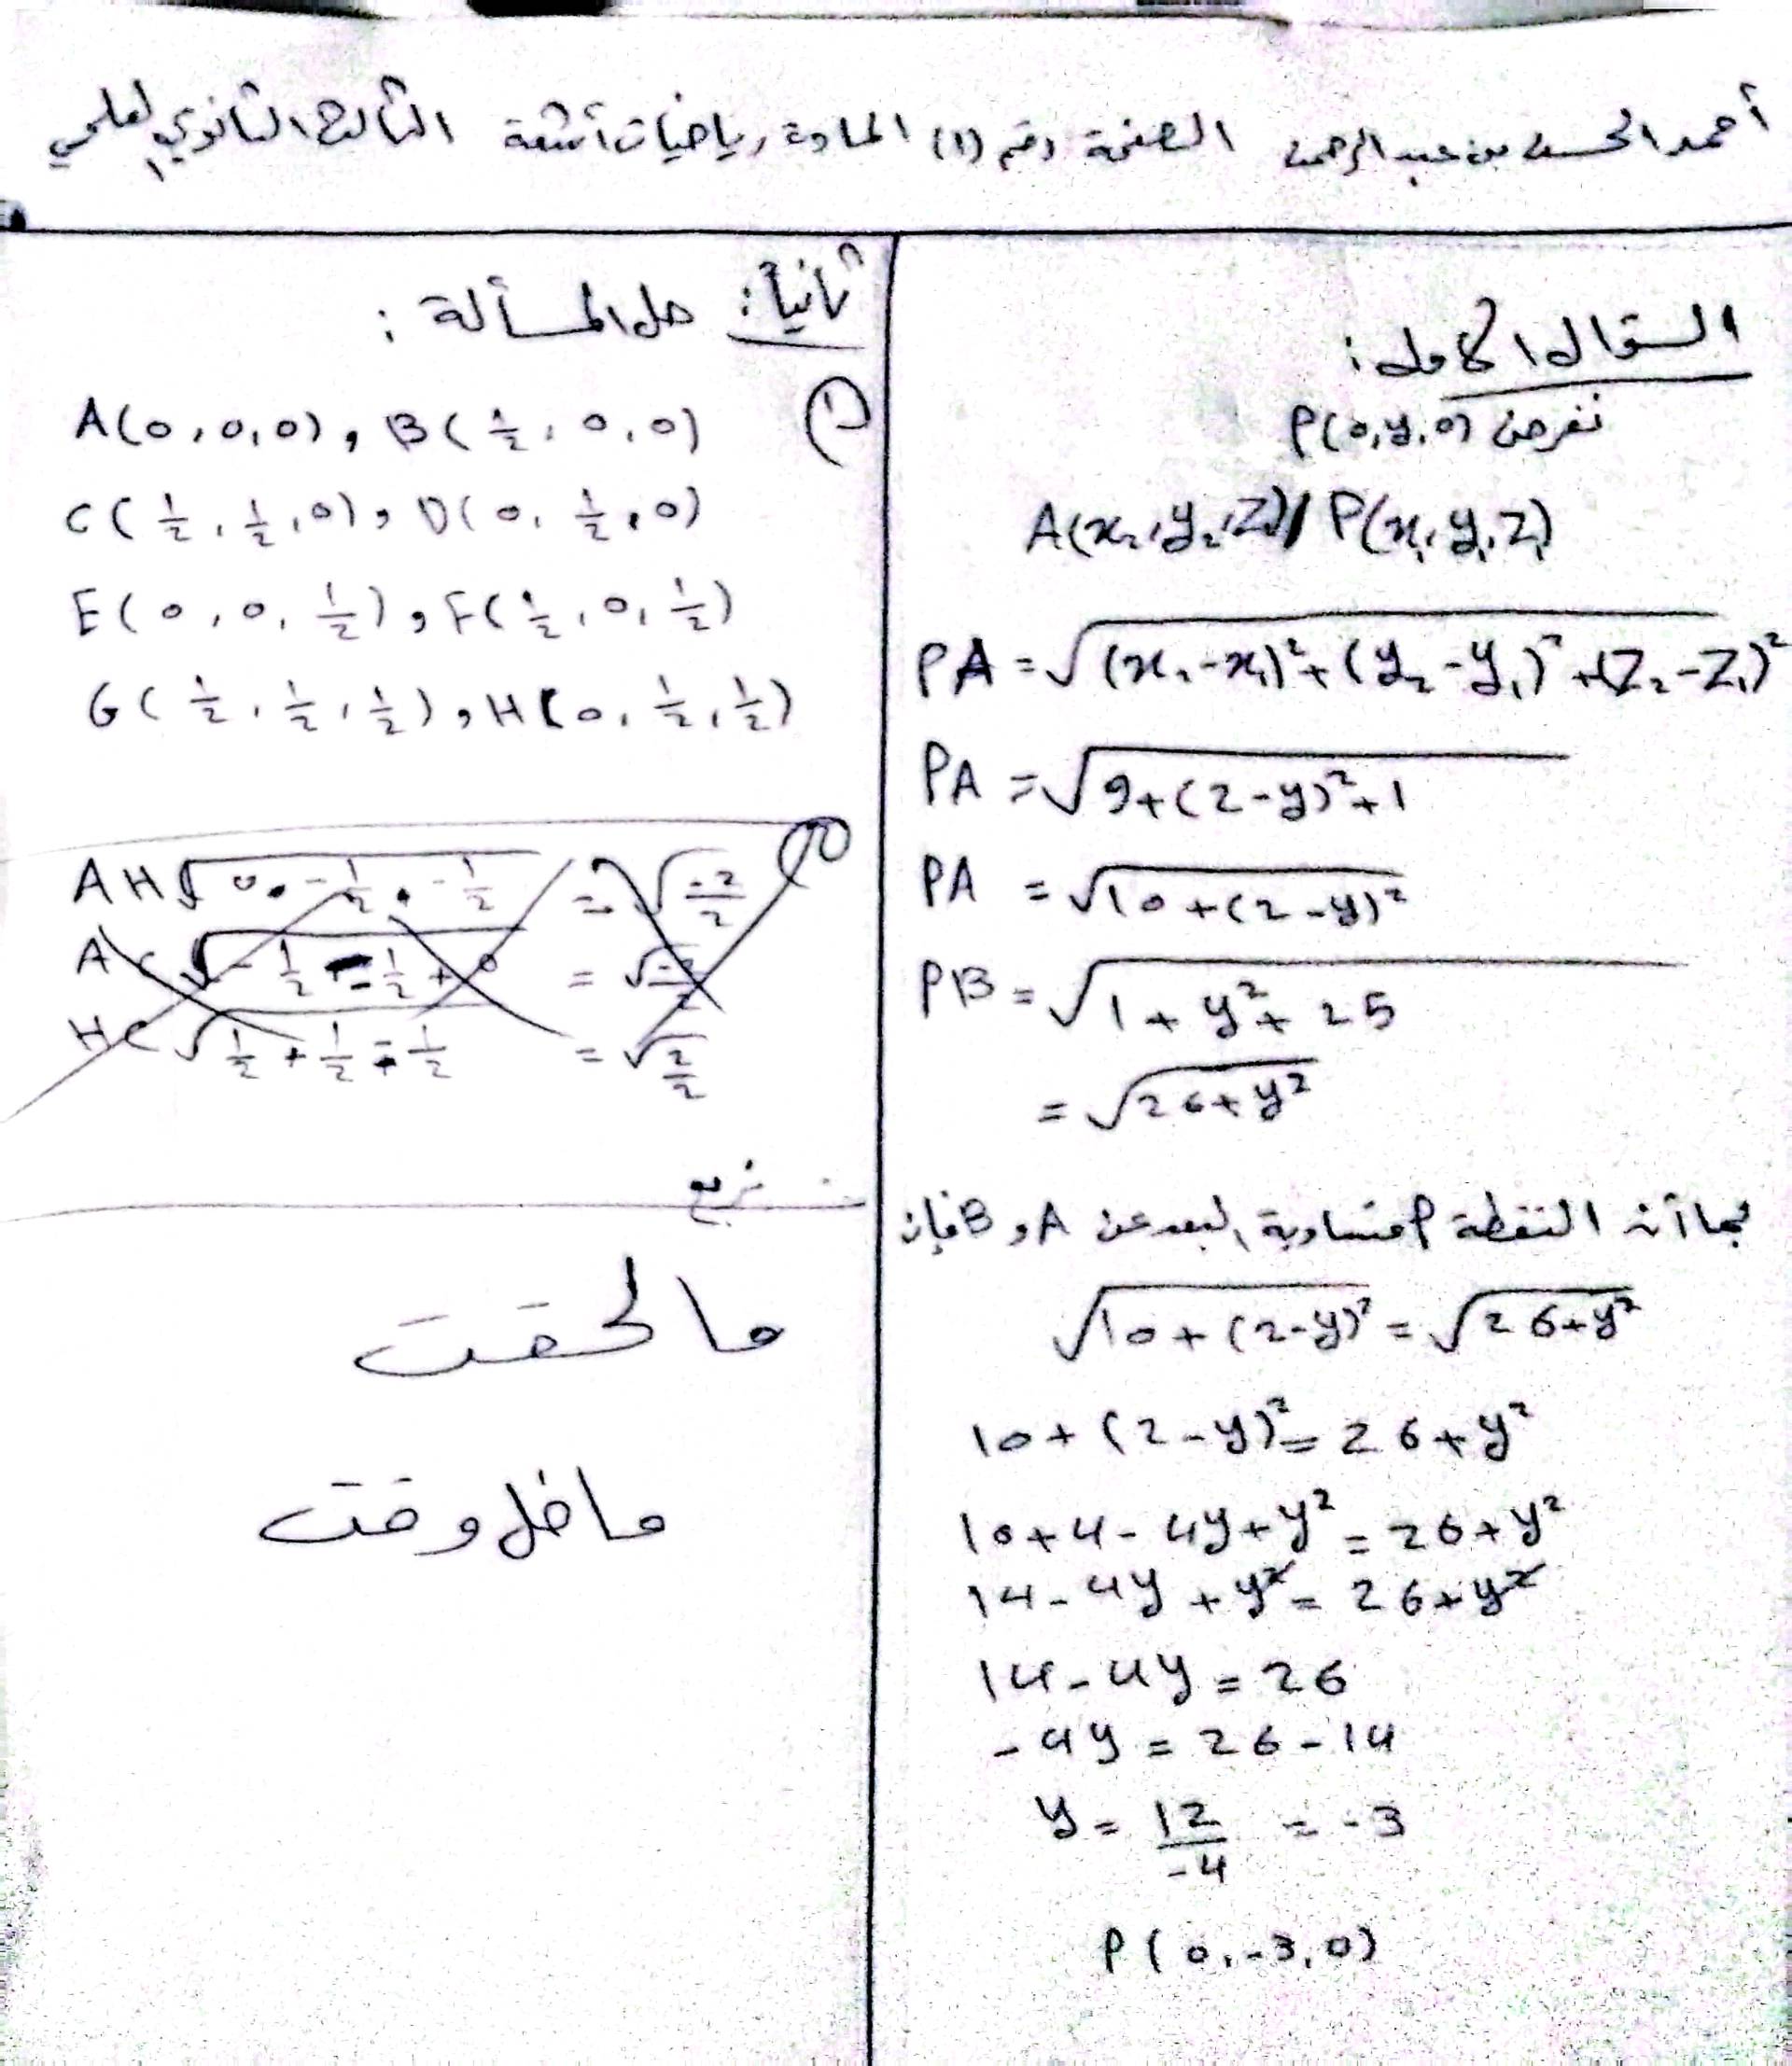 أحمد الحسن بن عبد الرحمن الصفحة رقم (١) المادة رياضيات أشعة الثالث الثانوي العلمي
السؤال الأول:
نفرض P(0,y,0)
A(x₂,y₂,z₂) P(x₁,y₁,z₁)
PA = √(x₂-x₁)²+(y₂-y₁)²+(z₂-z₁)²
PA = √9+(2-y)²+1
PA = √10+(2-y)²
PB = √1+y²+25
= √26+y²
بما أن النقطة P متساوية البعد عن A و B فإن
√10+(2-y)² = √26+y²
10+(2-y)² = 26+y²
10+4-4y+y² = 26+y²
14-4y+y² = 26+y²
14-4y = 26
-4y = 26-14
y = 12/-4 = -3
P(0,-3,0)
ثانياً: حل المسألة:
①
A(0,0,0), B(1/2,0,0)
C(1/2,1/2,0), D(0,1/2,0)
E(0,0,1/2), F(1/2,0,1/2)
G(1/2,1/2,1/2), H(0,1/2,1/2)
AH √0 - 1/2 - 1/2 = √-2/2
AC √-1/2 - 1/2 + 0 = √-2/2
HC √1/2 + 1/2 - 1/2 = √2/2
نربع
مالحقت
ماضل وقت